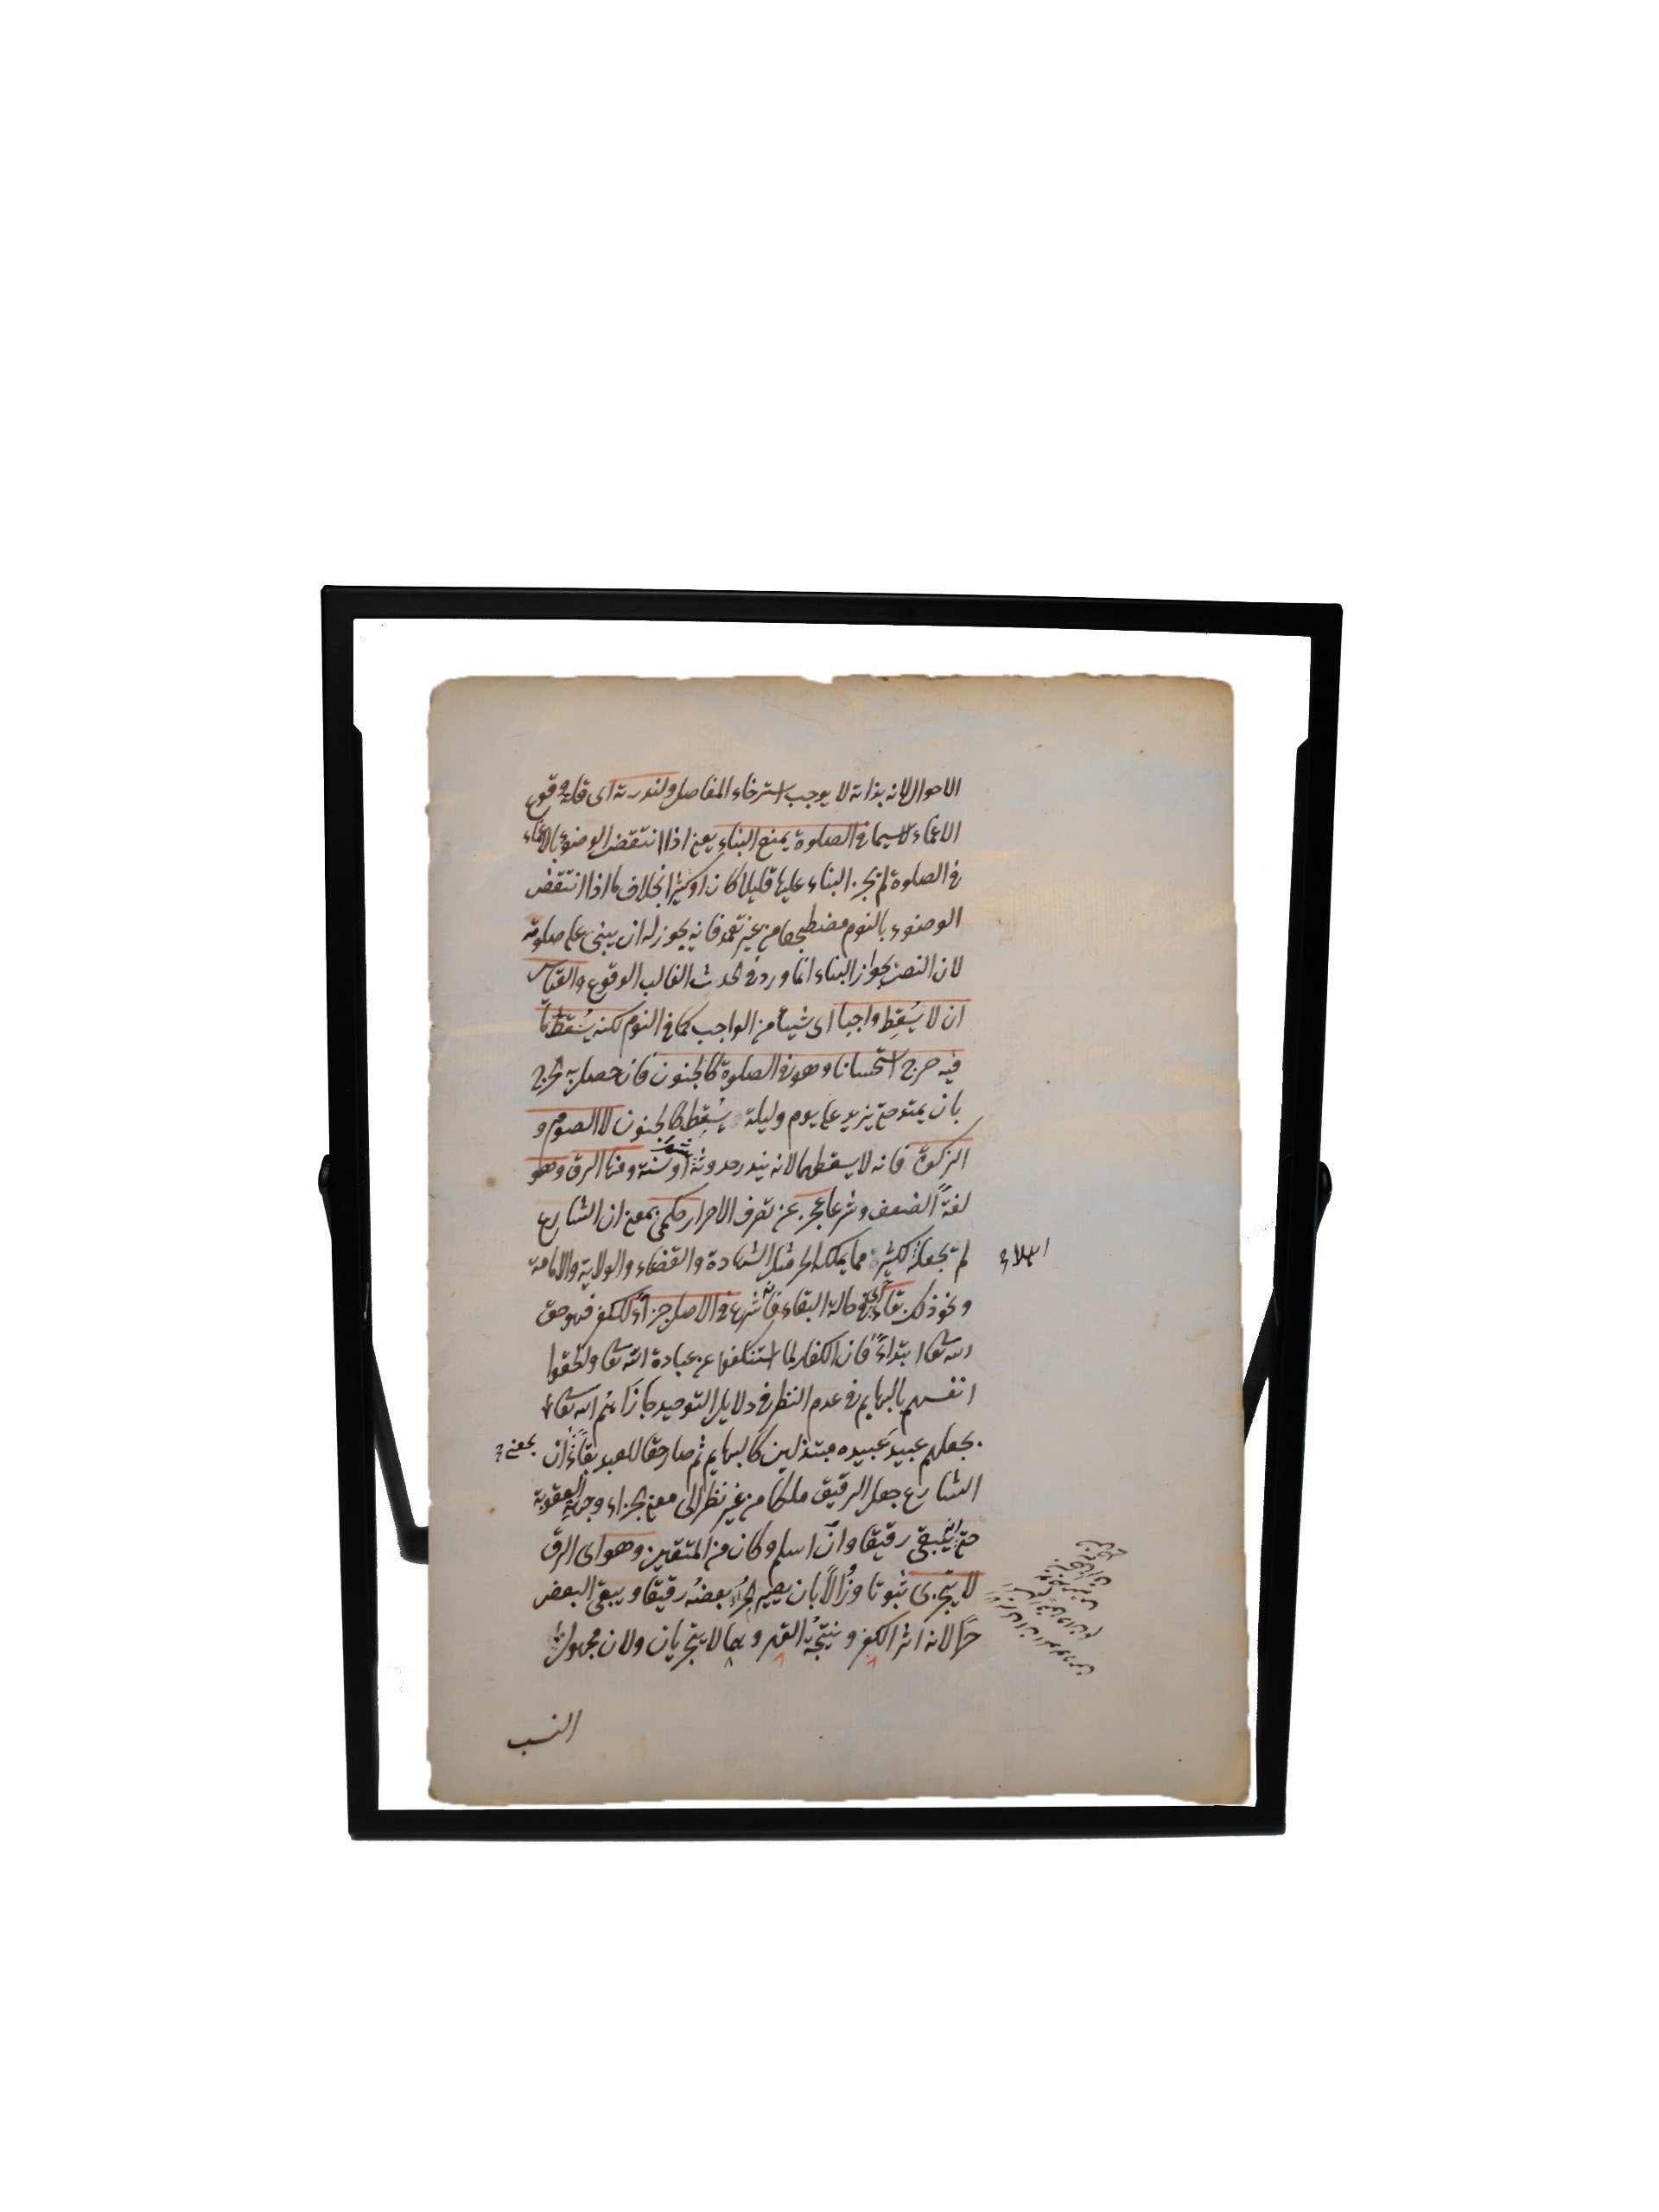 الاحوال لانه بذاته لا يوجب استرخاء المفاصل ولندرته اى قلة وقوع
الاغماء لاسيما فى الصلوة يمنع البناء يعنى اذا انتقض الوضوء بالاغماء
فى الصلوة لم يجز البناء عليها قليلا كان او كثيرا بخلاف ما اذا انتقض
الوضوء بالنوم مضطجعا من غير تعمد فانه يجوز له ان يبنى على صلوته
لان النص بجواز البناء انما ورد فى الحدث الغالب الوقوع والقياس
ان لا يسقط واجبا اى شيئا من الواجب كما فى النوم لكنه يسقط ما
فيه حرج استحسانا وهو فى الصلوة كالجنون فان حصل به الحرج
بان يمتد حتى يزيد على يوم وليلة يسقط كالجنون لا الصوم و
الزكوة فانه لا يسقطهما لانه يندر حدوثه شهرا او سنة ومنها الرق وهو
لغة الضعف وشرعا عجز عن تصرف الاحرار حكمى بمعنى ان الشارع
لم يجعله لكثير مما يملكه الحر مثل الشهادة والقضاء والولاية والامامة
اهلا
ونحو ذلك بقاء اى فى حالة البقاء فانه شرع فى الاصل جزاء للكفر فهو حق
الله تعا ابتداء فان الكفار لما استنكفوا عن عبادة الله تعا ولحقوا
انفسهم بالبهايم فى عدم النظر فى دلايل التوحيد جازاهم الله تعا
بجعلهم عبيد عبيده مبتذلين كالبهايم ثم صار حقا للعبد بقاء ان
بمعنى
الشارع جعل الرقيق ملكا من غير نظر الى معنى الجزاء وجهة العقوبة
حتى انه يبقى رقيقا وان اسلم وكان من المتقين وهو اى الرق
لا يتجزى ثبوتا وزوالا بان يصير الحر بعضه رقيقا ويبقى البعض
حرا لانه اثر الكفر ونتيجة القهر وهما لا يتجزيان ولان مجهول
النسب